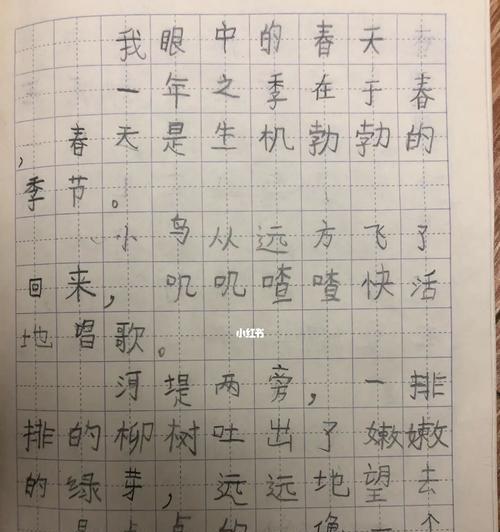 我眼中的春天
一年之季在于春
，春天是生机勃勃的
季节。
小鸟从远方飞了
回来，叽叽喳喳快活
地唱歌。
小红书
河堤两旁，一排
排的柳树吐出了嫩嫩
的绿芽，远远地望去